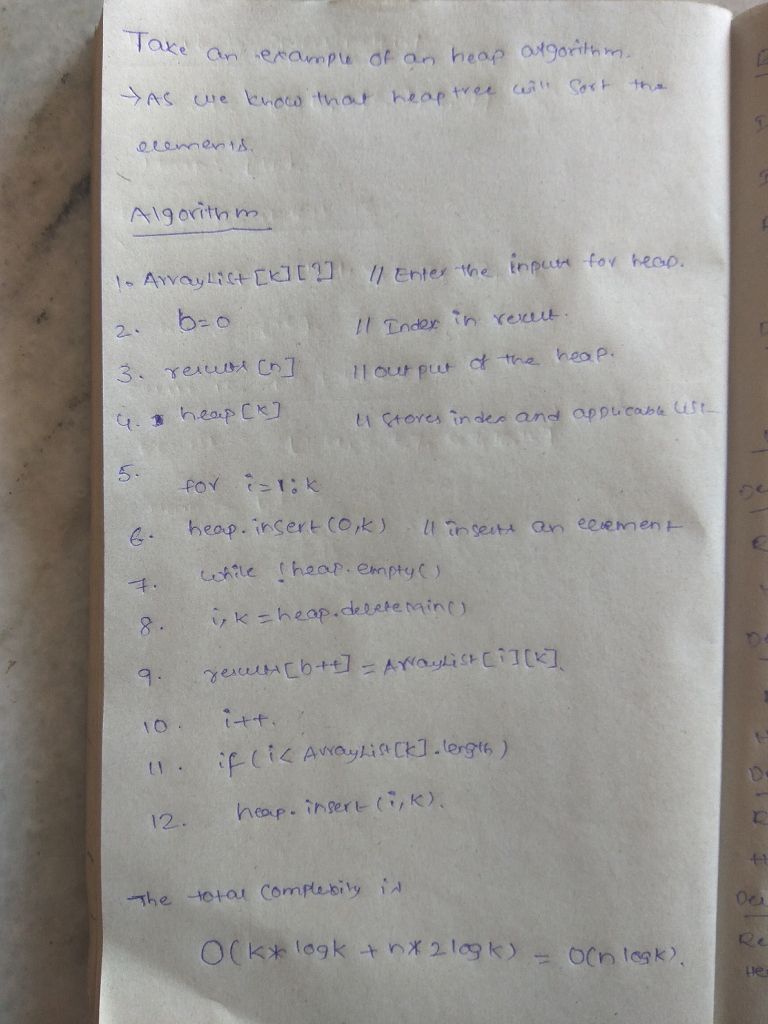 Take an example of an heap algorithm.
→ As we know that heap tree will sort the
elements.
Algorithm
1. ArrayList [k][?] // Enter the inputs for heap.
2. b=0 // Index in result.
3. result [n] // output of the heap.
4. heap [k] // Stores index and applicable list
5. for i=1:k
6. heap.insert (0,k) // inserts an element
7. while !heap.empty()
8. i,k = heap.deletemin()
9. result[b++] = ArrayList[i][k].
10. i++.
11. if (i< ArrayList[k].length)
12. heap.insert (i,k).
The total complexity is
O(k*logk + n*2logk) = O(n logk).